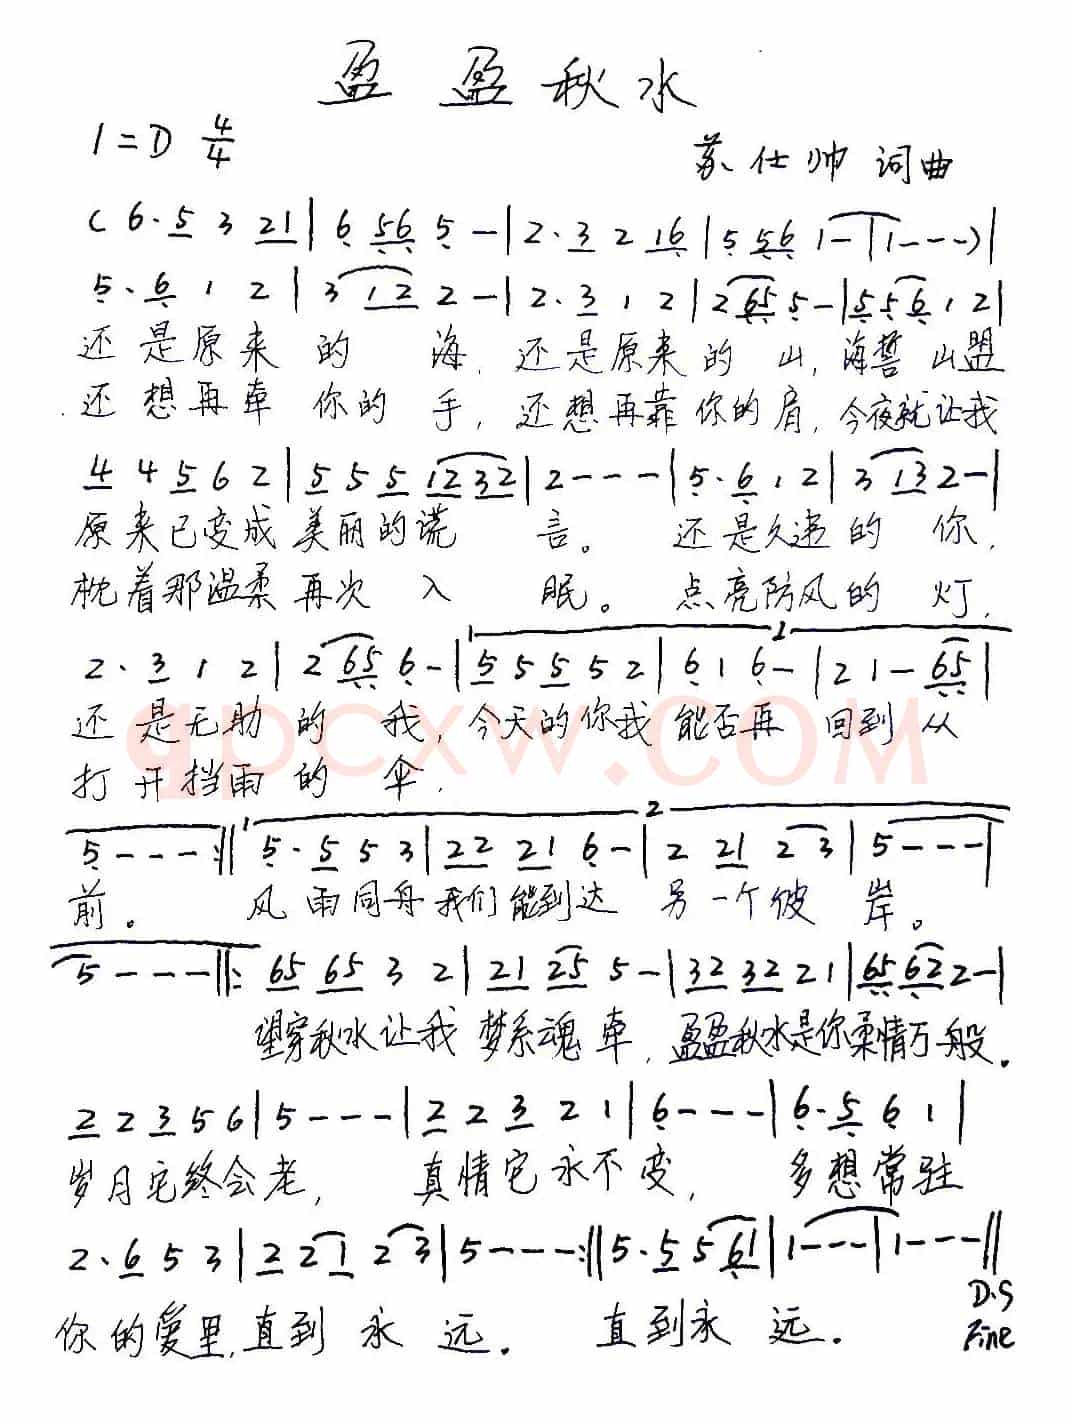 盈盈秋水
1=D 4/4
苏仕帅 词曲
( 6·5 3 21 | 6 56 5 - | 2·3 2 16 | 5 56 1 - | 1 - - - ) |
5·6 1 2 | 3 12 2 - | 2·3 1 2 | 2 65 5 - | 5 5 6 1 2 |
还是原来的 海,还是原来的山,海誓山盟
还想再牵你的手,还想再靠你的肩,今夜就让我
4 4 5 6 2 | 5 5 5 1232 | 2 - - - | 5·6 1 2 | 3 13 2 - |
原来已变成美丽的谎 言。 还是久违的 你,
枕着那温柔再次 入 眠。 点亮防风的 灯,
2·3 1 2 | 2 65 6 - | 5 5 5 5 2 | 6 1 6 - | 2 1 - 65 |
1 2
还是无助的 我,今天的你我能否再 回到从
打开挡雨的 伞,
qpcxw.COM
5 - - - :|| 5·5 5 3 | 22 21 6 - | 2 21 2 3 | 5 - - - |
1 2
前。 风雨同舟我们能到达 另一个彼 岸。
5 - - - ||: 65 65 3 2 | 21 25 5 - | 32 32 21 | 65 62 2 - |
望穿秋水让我梦系魂牵,盈盈秋水是你柔情万般。
2 2 3 5 6 | 5 - - - | 2 2 3 2 1 | 6 - - - | 6·5 6 1 |
岁月它终会老, 真情它永不变, 多想常驻
2·6 5 3 | 2 2 1 2 3 | 5 - - - :|| 5·5 5 61 | 1 - - - | 1 - - - ||
D.S
你的爱里,直到 永 远。 直到永 远。
Fine